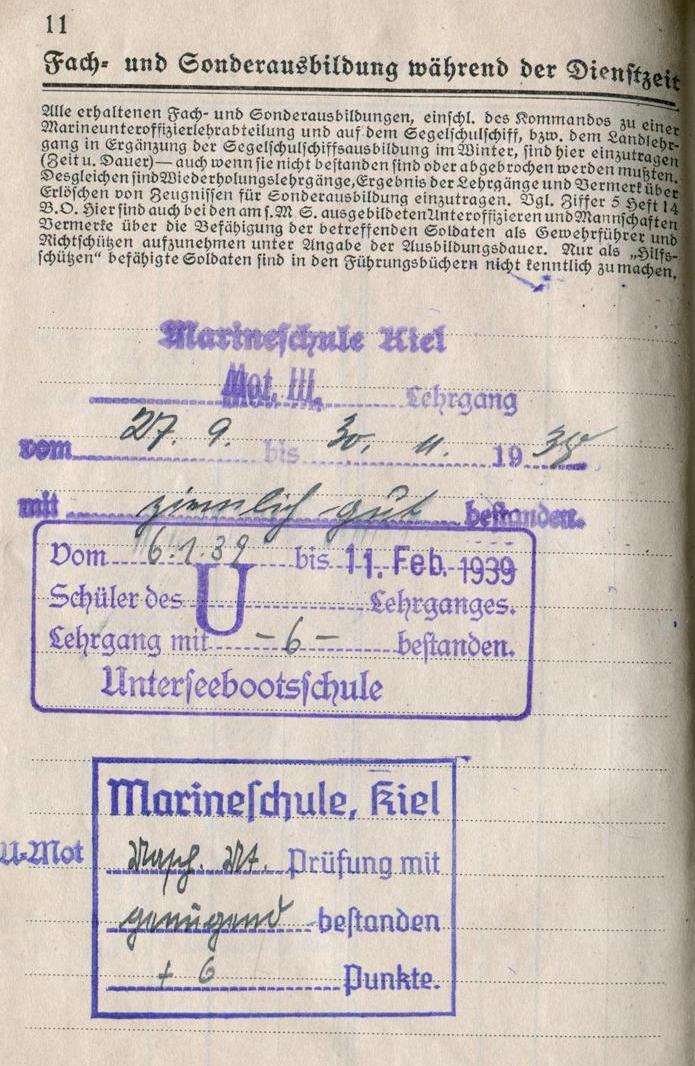 11
Fach- und Sonderausbildung während der Dienstzeit
Alle erhaltenen Fach- und Sonderausbildungen, einschl. des Kommandos zu einer
Marineunteroffizierlehrabteilung und auf dem Segelschulschiff, bzw. dem Landlehr-
gang in Ergänzung der Segelschulschiffsausbildung im Winter, sind hier einzutragen
(Zeit u. Dauer) — auch wenn sie nicht bestanden sind oder abgebrochen werden mußten.
Desgleichen sind Wiederholungslehrgänge, Ergebnis der Lehrgänge und Vermerk über
Erlöschen von Zeugnissen für Sonderausbildung einzutragen. Vgl. Ziffer 5 Heft 14
B.O. Hier sind auch bei den am s.M G. ausgebildeten Unteroffizieren und Mannschaften
Vermerke über die Befähigung der betreffenden Soldaten als Gewehrführer und
Richtschützen aufzunehmen unter Angabe der Ausbildungsdauer. Nur als „Hilfs-
schützen" befähigte Soldaten sind in den Führungsbüchern nicht kenntlich zu machen.
Marineschule Kiel
Mot. III. Lehrgang
vom 27. 9. bis 30. 11. 1938
mit ziemlich gut bestanden.
Vom 6.1.39 bis 11. Feb. 1939
Schüler des U Lehrganges.
Lehrgang mit -6- bestanden.
Unterseebootsschule
Marineschule, Kiel
U-Mot Masch. Mt. Prüfung mit
genügend bestanden
+ 6 Punkte.